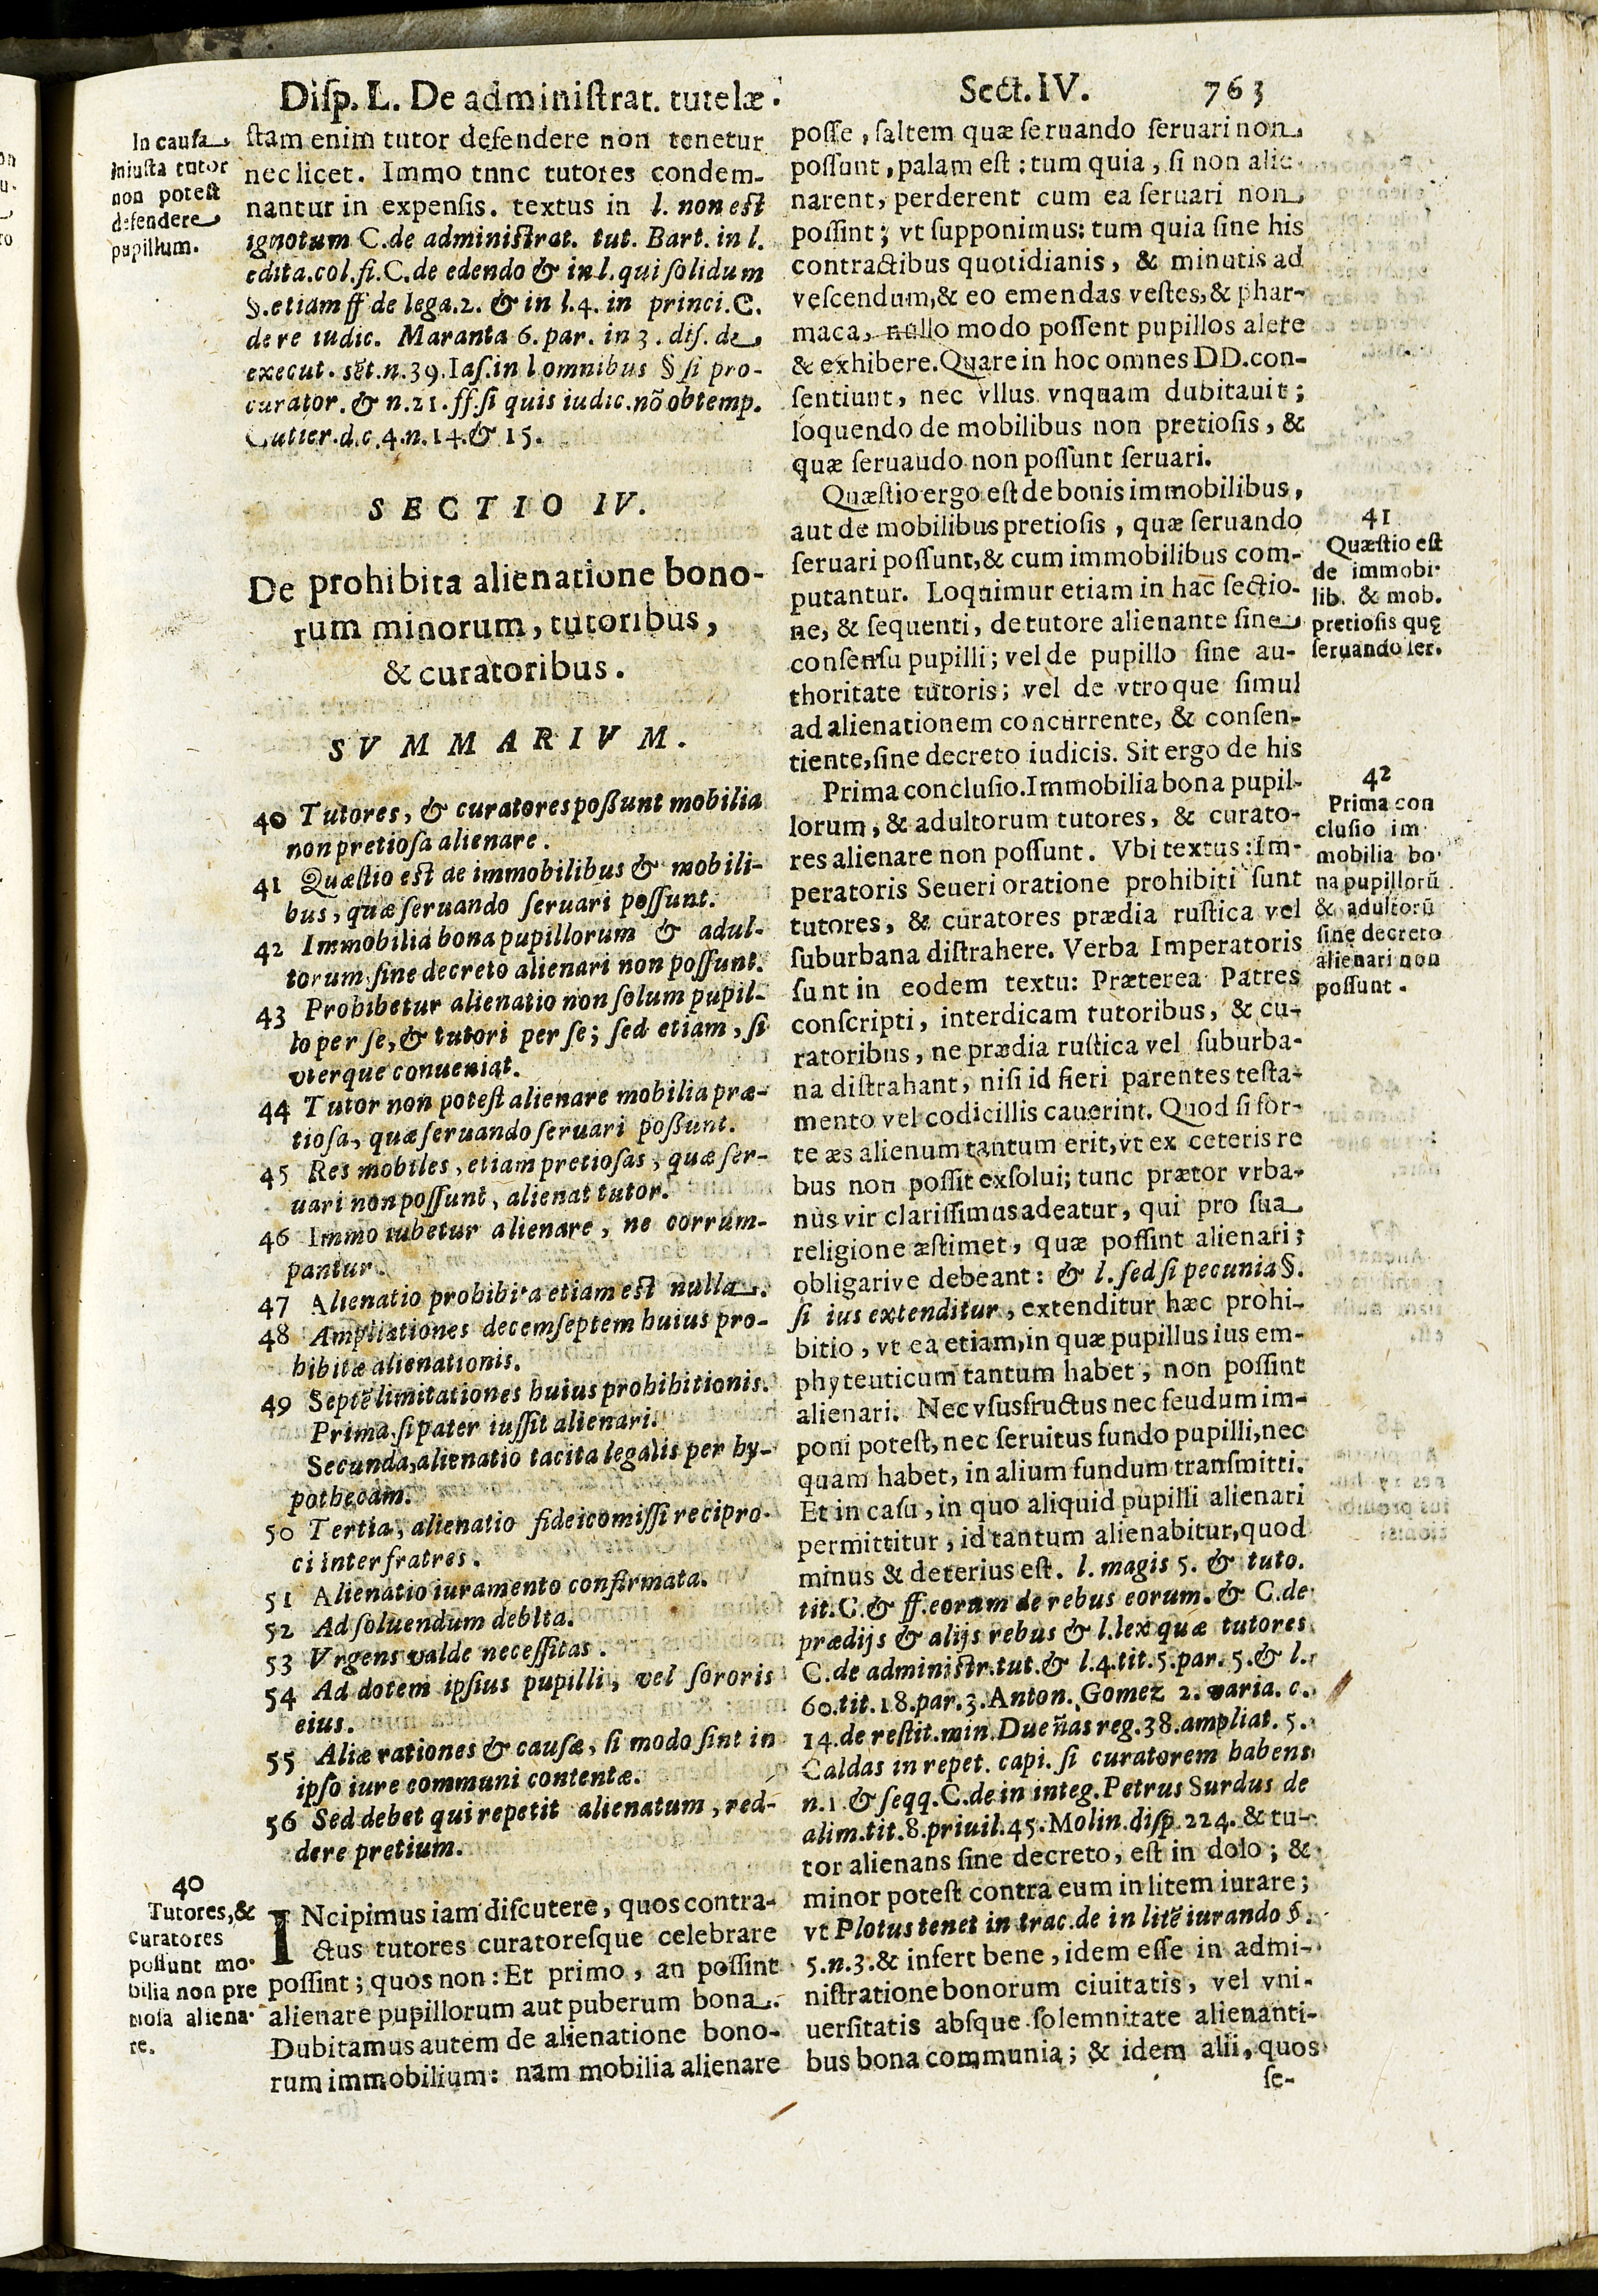 Diſp. L. De adminiſtrat. tutelæ.
Sect. IV.
763
In cauſa
iniuſta tutor
non poteſt
defendere
pupillum.
ſtam enim tutor defendere non tenetur
nec licet. Immo tnnc tutores condem-
nantur in expenſis. textus in l. non eſt
ignotum C. de adminiſtrat. tut. Bart. in l.
edita. col. fi. C. de edendo & in l. qui ſolidum
§. etiam ff de lega. 2. & in l. 4. in princi. C.
de re iudic. Maranta 6. par. in 3. diſ. de
execut. sẽt. n. 39. Iaſ. in l omnibus § ſi pro-
curator. & n. 21. ff. ſi quis iudic. nõ obtemp.
Gutier. d. c. 4. n. 14. & 15.
SECTIO IV.
De prohibita alienatione bono-
rum minorum, tutoribus,
& curatoribus.
SVMMARIVM.
40 Tutores, & curatores poßunt mobilia
non pretioſa alienare.
41 Quæſtio eſt de immobilibus & mobili-
bus, quæ ſeruando ſeruari poſſunt.
42 Immobilia bona pupillorum & adul-
torum ſine decreto alienari non poſſunt.
43 Prohibetur alienatio non ſolum pupil-
lo per ſe, & tutori per ſe; ſed etiam, ſi
vterque conueniat.
44 Tutor non poteſt alienare mobilia præ-
tioſa, quæ ſeruando ſeruari poßunt.
45 Res mobiles, etiam pretioſas, quæ ſer-
uari non poſſunt, alienat tutor.
46 Immo iubetur alienare, ne corrum-
pantur.
47 Alienatio prohibita etiam eſt nulla.
48 Ampliationes decemſeptem huius pro-
hibitæ alienationis.
49 Septẽ limitationes huius prohibitionis.
Prima, ſi pater iuſſit alienari.
Secunda, alienatio tacita legalis per hy-
pothecam.
50 Tertia, alienatio fideicomiſſi recipro-
ci inter fratres.
51 Alienatio iuramento confirmata.
52 Ad ſoluendum debita.
53 Vrgens valde neceſſitas.
54 Ad dotem ipſius pupilli, vel ſororis
eius.
55 Aliæ rationes & cauſæ, ſi modo ſint in
ipſo iure communi contentæ.
56 Sed debet qui repetit alienatum, red-
dere pretium.
40
Tutores, &
curatores
poſſunt mo-
bilia non pre
tioſa aliena-
re.
INcipimus iam diſcutere, quos contra-
ctus tutores curatoreſque celebrare
poſſint; quos non: Et primo, an poſſint
alienare pupillorum aut puberum bona.
Dubitamus autem de alienatione bono-
rum immobilium: nam mobilia alienare
poſſe, ſaltem quæ ſeruando ſeruari non
poſſunt, palam eſt: tum quia, ſi non alie-
narent, perderent cum ea ſeruari non
poſſint; vt ſupponimus: tum quia ſine his
contractibus quotidianis, & minutis ad
veſcendum, & eo emendas veſtes, & phar-
maca, nullo modo poſſent pupillos alere
& exhibere. Quare in hoc omnes DD. con-
ſentiunt, nec vllus vnquam dubitauit;
loquendo de mobilibus non pretioſis, &
quæ ſeruaudo non poſſunt ſeruari.
Quæſtio ergo eſt de bonis immobilibus,
aut de mobilibus pretioſis, quæ ſeruando
ſeruari poſſunt, & cum immobilibus com-
putantur. Loquimur etiam in hac ſectio-
ne, & ſequenti, de tutore alienante ſine
conſenſu pupilli; vel de pupillo ſine au-
thoritate tutoris; vel de vtroque ſimul
ad alienationem concurrente, & conſen-
tiente, ſine decreto iudicis. Sit ergo de his
Prima concluſio. Immobilia bona pupil-
lorum, & adultorum tutores, & curato-
res alienare non poſſunt. Vbi textus: Im-
peratoris Seueri oratione prohibiti ſunt
tutores, & curatores prædia ruſtica vel
ſuburbana diſtrahere. Verba Imperatoris
ſunt in eodem textu: Præterea Patres
conſcripti, interdicam tutoribus, & cu-
ratoribus, ne prædia ruſtica vel ſuburba-
na diſtrahant, niſi id fieri parentes teſta-
mento vel codicillis cauerint. Quod ſi for-
te æs alienum tantum erit, vt ex ceteris re
bus non poſſit exſolui; tunc prætor vrba-
nus vir clariſſimus adeatur, qui pro ſua
religione æſtimet, quæ poſſint alienari;
obligarive debeant: & l. ſed ſi pecunia §.
ſi ius extenditur, extenditur hæc prohi-
bitio, vt ea etiam, in quæ pupillus ius em-
phyteuticum tantum habet, non poſſint
alienari. Nec vſusfructus nec feudum im-
poni poteſt, nec ſeruitus fundo pupilli, nec
quam habet, in alium fundum tranſmitti.
Et in caſu, in quo aliquid pupilli alienari
permittitur, id tantum alienabitur, quod
minus & deterius eſt. l. magis 5. & tuto.
tit. C. & ff. eorum de rebus eorum. & C. de
prædijs & alijs rebus & l. lex quæ tutores
C. de adminiſtr. tut. & l. 4. tit. 5. par. 5. & l.
60. tit. 18. par. 3. Anton. Gomez 2. varia. c.
14. de reſtit. min. Dueñas reg. 38. ampliat. 5.
Caldas in repet. capi. ſi curatorem habens
n. 1 & ſeqq. C. de in integ. Petrus Surdus de
alim. tit. 8. priuil. 45. Molin. diſp. 224. & tu-
tor alienans ſine decreto, eſt in dolo; &
minor poteſt contra eum in litem iurare;
vt Plotus tenet in trac. de in litẽ iurando §.
5. n. 3. & infert bene, idem eſſe in admi-
niſtratione bonorum ciuitatis, vel vni-
uerſitatis abſque ſolemnitate alienanti-
bus bona communia; & idem alii, quos
ſe-
41
Quæſtio eſt
de immobi-
lib. & mob.
pretioſis quę
ſeruando ſer.
42
Prima con
cluſio im
mobilia bo-
na pupillorũ
& adultorũ
ſine decreto
alienari non
poſſunt.